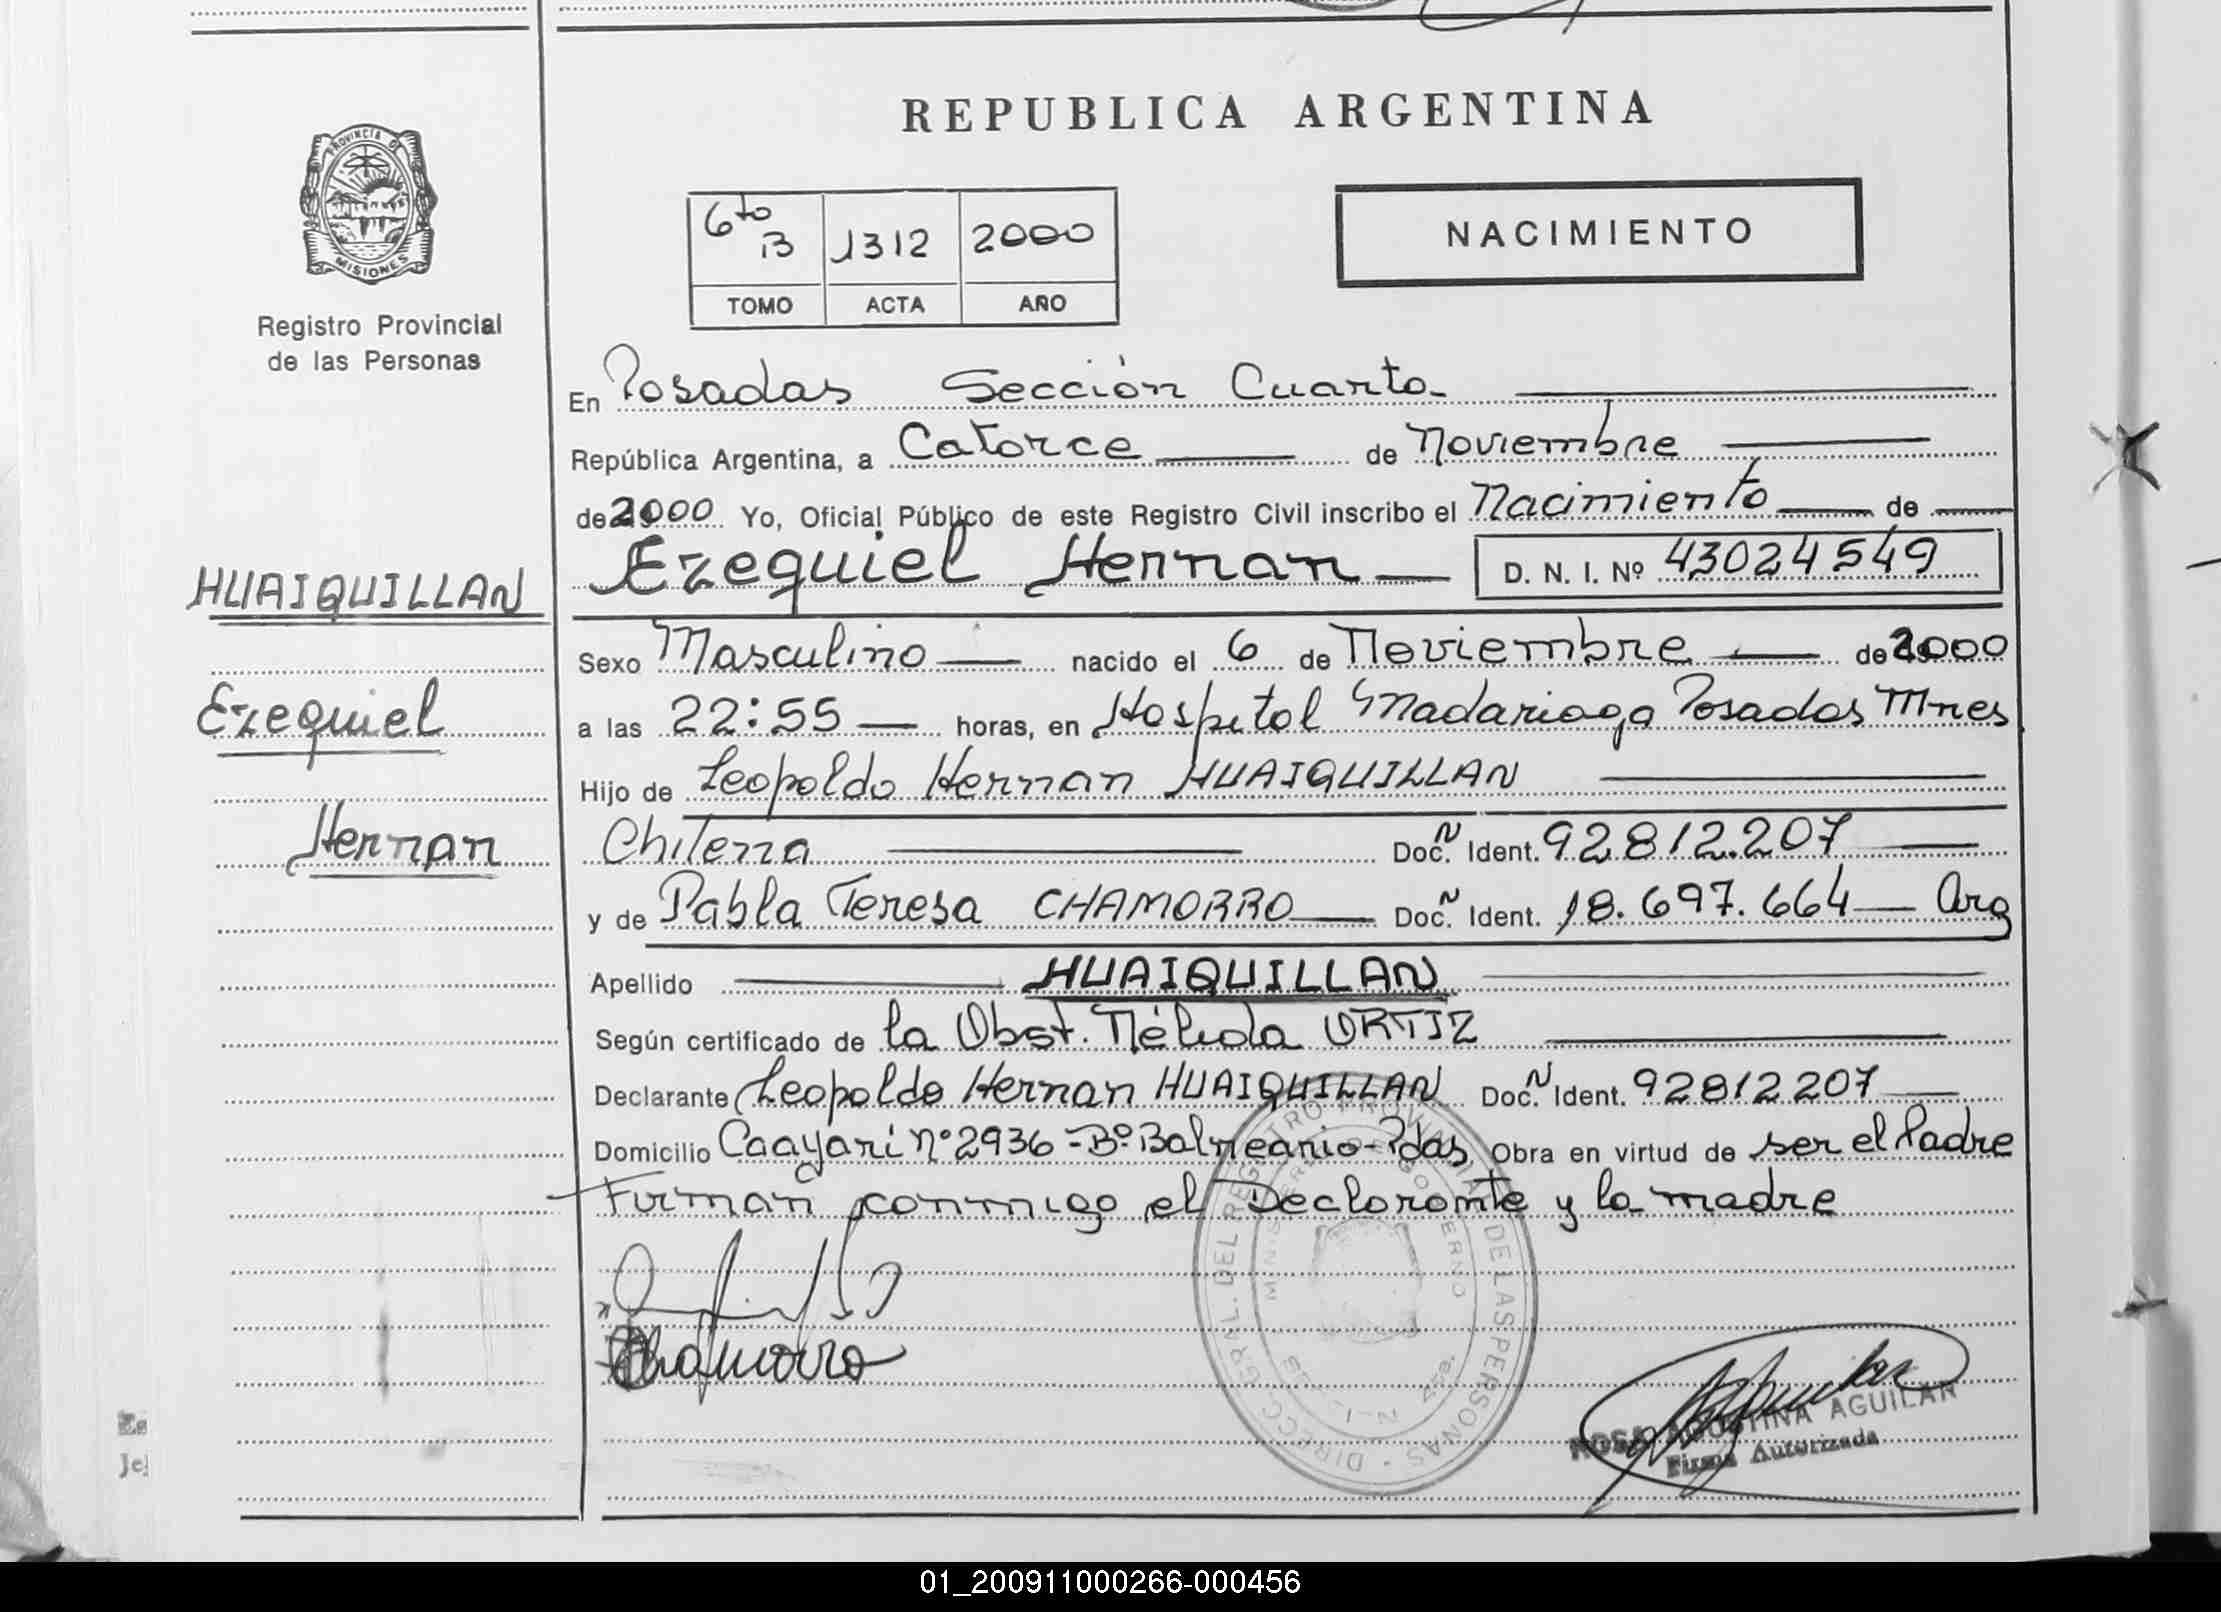 REPUBLICA ARGENTINA
PROVINCIA DE
MISIONES
Registro Provincial
de las Personas
6to B 1312 2000
TOMO ACTA AÑO
NACIMIENTO
En Posadas Sección Cuarta
República Argentina, a Catorce de Noviembre
de 2000 Yo, Oficial Público de este Registro Civil inscribo el Nacimiento de
Ezequiel Hernan D. N. I. Nº 43024549
HUAIQUILLAN
Ezequiel
Hernan
Sexo Masculino nacido el 6 de Noviembre de 2000
a las 22:55 horas, en Hospital Madariaga Posadas Mnes
Hijo de Leopoldo Hernan HUAIQUILLAN
Chilena Doc. N Ident. 92.812.207
y de Pabla Teresa CHAMORRO Doc. N Ident. 18.697.664 Arg
Apellido HUAIQUILLAN
Según certificado de la Obst. Nélida ORTIZ
Declarante Leopoldo Hernan HUAIQUILLAN Doc. N Ident. 92812207
Domicilio Caayarí Nº 2936 - Bº Balneario - Pdas Obra en virtud de ser el Padre
Firman conmigo el Declarante y la madre
Chamorro
DIRECC. GRAL. DEL REGISTRO PROVINCIAL DE LAS PERSONAS
MINISTERIO DE GOBIERNO
ROSA AGUSTINA AGUILAR
Firma Autorizada
01_200911000266-000456